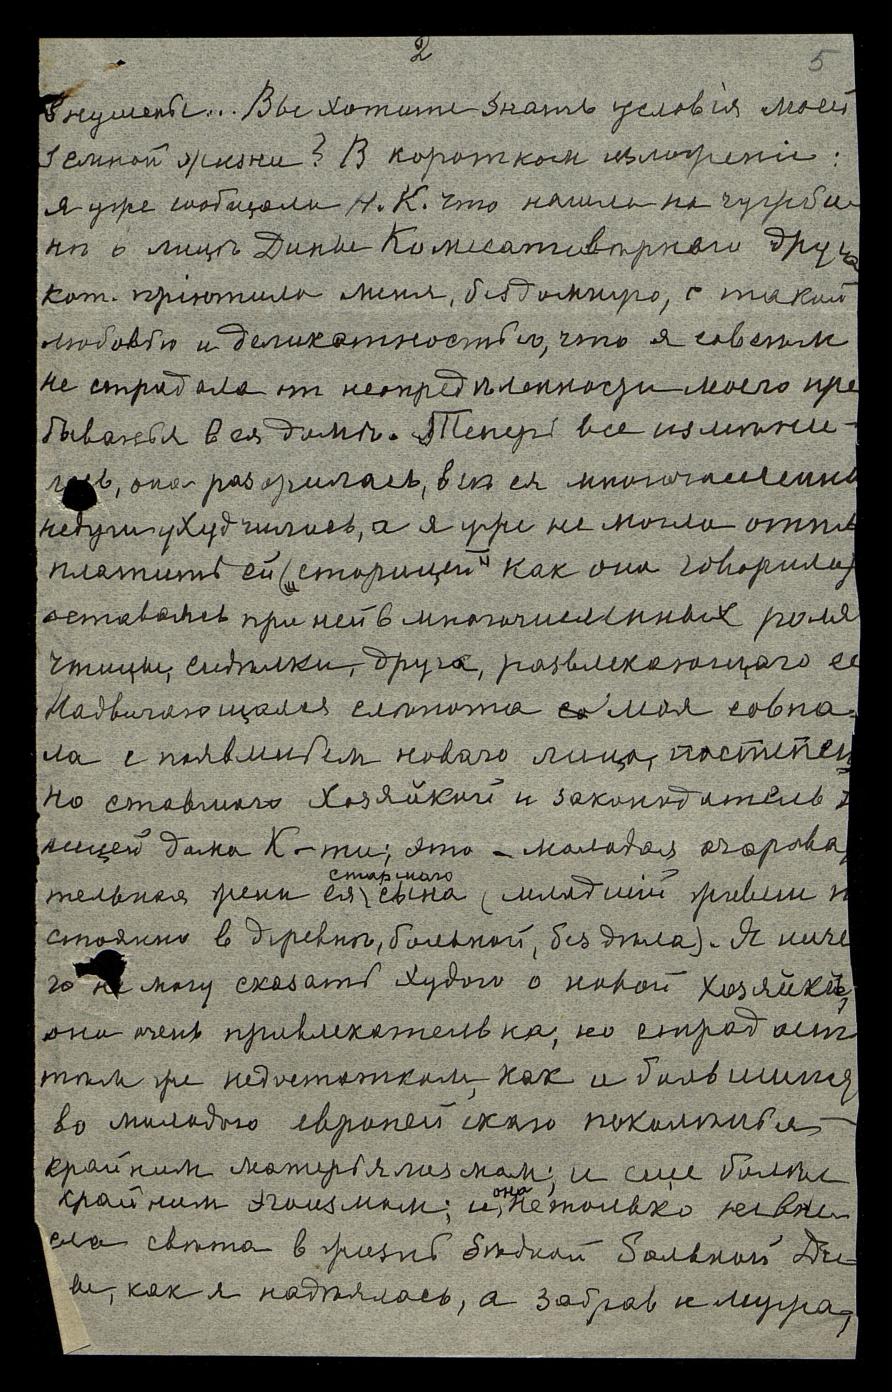 2
5
знушенье... Вы хотите знать условія моей
земной жизни? В коротком изложеніи:
я уже сообщала Н. К. что нашла на чужби
нѣ в лицѣ Дины друга
кот. пріютила меня, бездомную, с такой
любовью и деликатностью, что я совсѣм
не страдала от неопредѣленности моего пре
быванья в ея домѣ. Теперь все измѣни-
лась, она разорилась, всѣ ея многочисленны
недуги ухудчились, а я уже не могла отпла
платить ей („сторицей" как она говорила)
оставаясь при ней в многочисленных роля
чтицы, сидѣлки, друга, развлекающаго ее
Надвигающаяся слѣпота моя совпа-
ла с появленьем новаго лица, постепен
но ставшаго хозяйкой и законодатель
ницей дома К-ти; это – молодая очарова
тельная жена ея старшаго сына (младшій живет п
стоянно в деревнѣ, больной, без дѣла). Я ниче
го не могу сказать худого о новой хозяйкѣ,
она очень привлекательна, но страдает
тѣм же недостатком, как и большинст
во молодого европейскаго поколѣнья –
крайним матерьялизмом; и еще болѣе
крайним эгоизмом; и она не только не вне
сла свѣта в жизнь бѣдной больной Ди-
ны, как я надѣялась, а забрав и мужа,